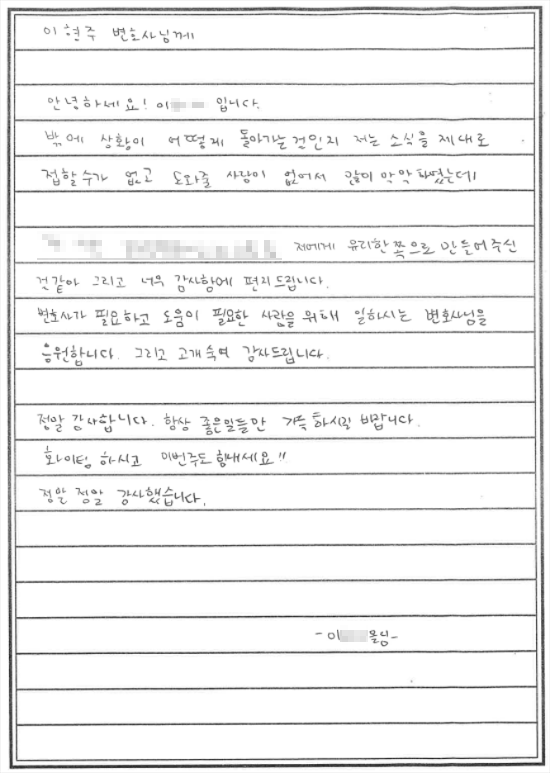 이현주 변호사님께
안녕하세요! 이 입니다.
밖에 상황이 어떻게 돌아가는건인지 저는 소식을 제대로
접할수가 없고 도와줄 사람이 없어서 많이 막막하였는데
저에게 유리한쪽으로 만들어주신
건같아 그리고 너무 감사함에 편지드립니다.
변호사가 필요하고 도움이 필요한 사람을 위해 일하시는 변호사님을
응원합니다. 그리고 고개숙여 감사드립니다.
정말 감사합니다. 항상 좋은일들만 가득하시길 바랍니다.
화이팅 하시고 이번주도 힘내세요!!
정말 정말 감사했습니다.
-이 올림-